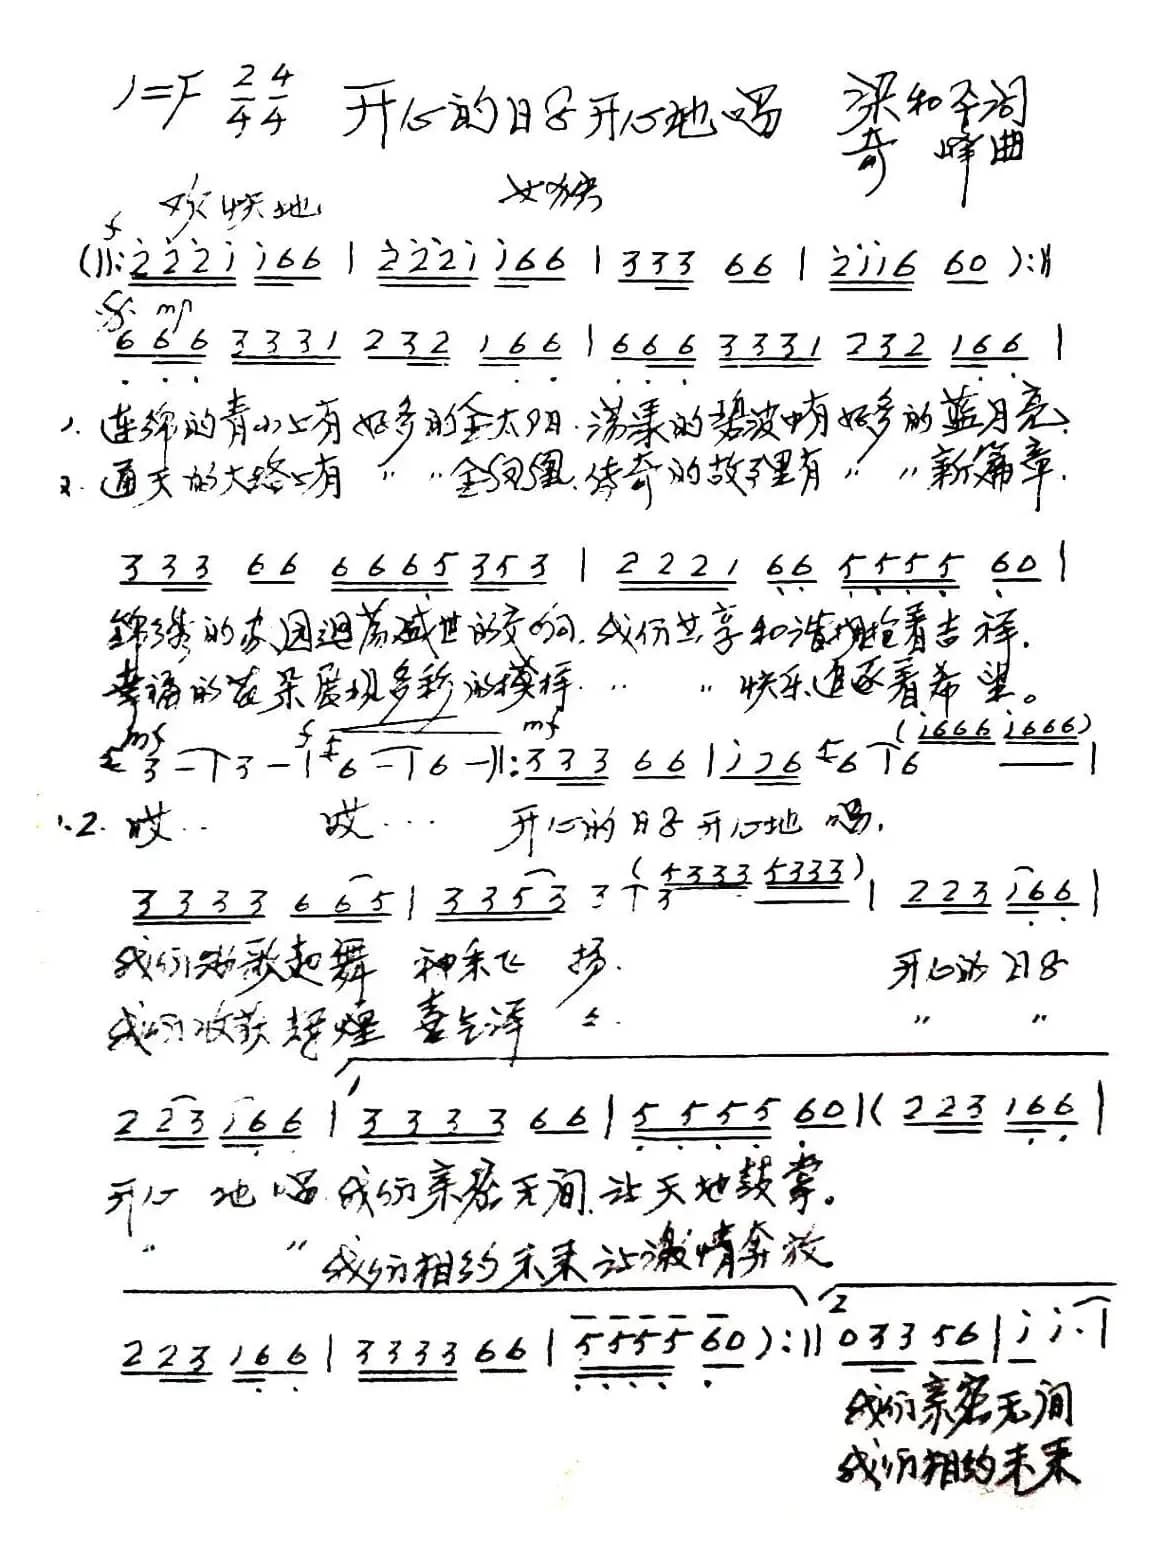 1=F 2/4 4/4 开心的日子开心地唱 梁和平词
奇峰曲
欢快地 女独
f
(‖: 2 2 2 1 1 6 6 | 2 2 2 1 1 6 6 | 3 3 3 6 6 | 2 1 1 6 6 0 ) :‖
mp
6 6 6 3 3 3 1 2 3 2 1 6 6 | 6 6 6 3 3 3 1 2 3 2 1 6 6 |
1. 连绵的青山上有好多的金太阳.荡漾的碧波中有好多的蓝月亮.
2. 通天的大路上有 〃 〃 金凤凰.传奇的故事里有 〃 〃 新篇章.
3 3 3 6 6 6 6 6 5 3 5 3 | 2 2 2 1 6 6 5 5 5 5 6 0 |
锦绣的家园回荡盛世的交响.我们共享和谐拥抱着吉祥.
幸福的花朵展现多彩的模样. 〃 〃 快乐追逐着希望。
mf f mf
3 – | 3 – | 6 – | 6 – ‖: 3 3 3 6 6 | 1 2 6 5 6 | 6 (1 6 6 6 1 6 6 6) |
1.2. 哎... 哎... 开心的日子开心地 唱.
3 3 3 3 6 6 5 | 3 3 5 3 3 | 3 (5 3 3 3 5 3 3 3) | 2 2 3 1 6 6 |
我们放歌起舞 神采飞 扬. 开心的日子
我们收获辉煌 喜气洋 〃. 〃 〃
2 2 3 1 6 6 | 1 3 3 3 3 6 6 | 5 5 5 5 6 0 | ( 2 2 3 1 6 6 |
开心 地 唱.我们亲密无间.让天地鼓掌。
〃 〃 我们相约未来让激情奔放
2 2 3 1 6 6 | 3 3 3 3 6 6 | 5 5 5 5 6 0 ) :‖ 2 0 3 3 5 6 | 1 1. |
我们亲密无间
我们相约未来